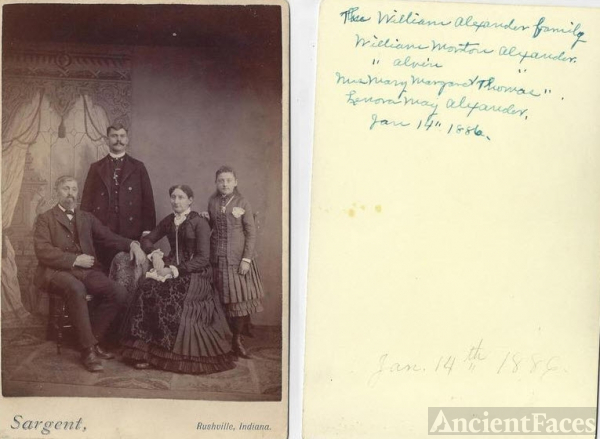 The William Alexander family
William Morton Alexander.
" Alvin "
Mrs Mary Margaret Thomas " .
Lenora May Alexander.
Jan 14th 1886.
Jan. 14th 1886.
Sargent,
Rushville, Indiana.
AncientFaces